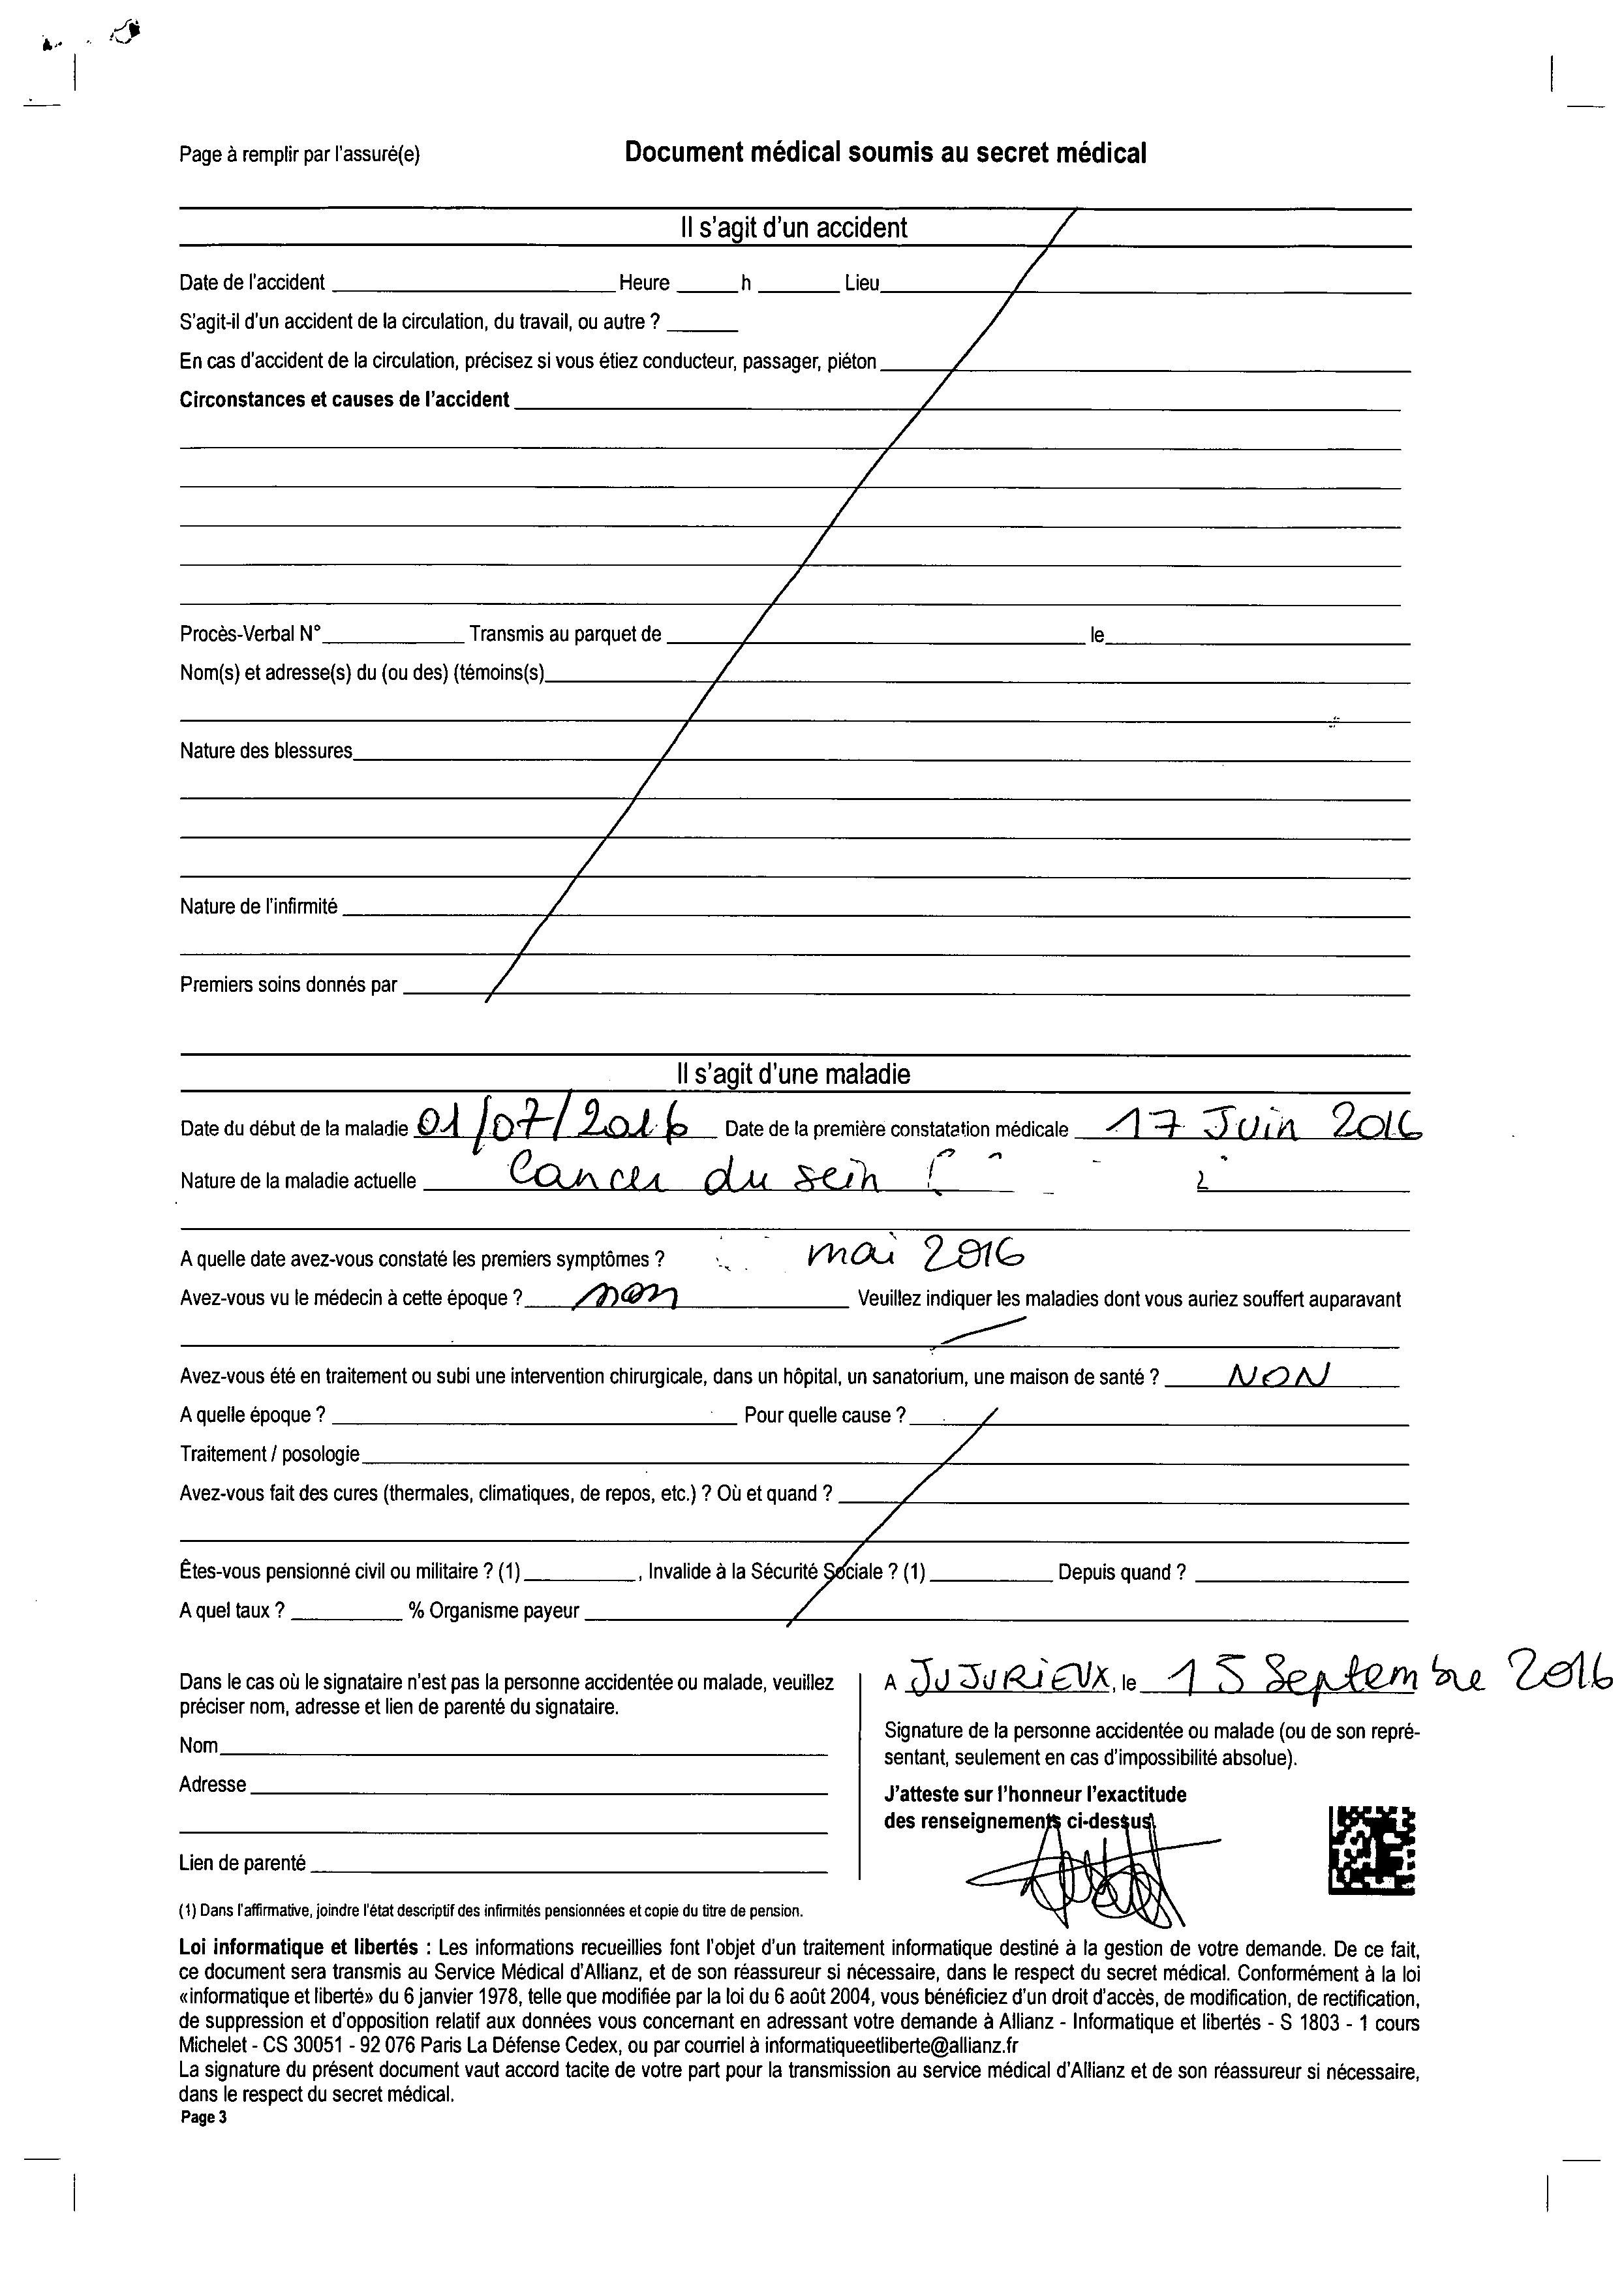 Page à remplir par l'assuré(e) Document médical soumis au secret médical
Il s'agit d'un accident
Date de l'accident Heure h Lieu
S'agit-il d'un accident de la circulation, du travail, ou autre ?
En cas d'accident de la circulation, précisez si vous étiez conducteur, passager, piéton
Circonstances et causes de l'accident
Procès-Verbal N° Transmis au parquet de le
Nom(s) et adresse(s) du (ou des) (témoins(s)
Nature des blessures
Nature de l'infirmité
Premiers soins donnés par
Il s'agit d'une maladie
Date du début de la maladie 01/07/2016 Date de la première constatation médicale 17 Juin 2016
Nature de la maladie actuelle Cancer du sein
A quelle date avez-vous constaté les premiers symptômes ? mai 2016
Avez-vous vu le médecin à cette époque ? non Veuillez indiquer les maladies dont vous auriez souffert auparavant
Avez-vous été en traitement ou subi une intervention chirurgicale, dans un hôpital, un sanatorium, une maison de santé ? NON
A quelle époque ? Pour quelle cause ?
Traitement / posologie
Avez-vous fait des cures (thermales, climatiques, de repos, etc.) ? Où et quand ?
Êtes-vous pensionné civil ou militaire ? (1) , Invalide à la Sécurité Sociale ? (1) Depuis quand ?
A quel taux ? % Organisme payeur
Dans le cas où le signataire n'est pas la personne accidentée ou malade, veuillez
préciser nom, adresse et lien de parenté du signataire.
Nom
Adresse
Lien de parenté
A JUJURIEUX, le 15 Septembre 2016
Signature de la personne accidentée ou malade (ou de son repré-
sentant, seulement en cas d'impossibilité absolue).
J'atteste sur l'honneur l'exactitude
des renseignements ci-dessus
(1) Dans l'affirmative, joindre l'état descriptif des infirmités pensionnées et copie du titre de pension.
Loi informatique et libertés : Les informations recueillies font l'objet d'un traitement informatique destiné à la gestion de votre demande. De ce fait,
ce document sera transmis au Service Médical d'Allianz, et de son réassureur si nécessaire, dans le respect du secret médical. Conformément à la loi
«informatique et liberté» du 6 janvier 1978, telle que modifiée par la loi du 6 août 2004, vous bénéficiez d'un droit d'accès, de modification, de rectification,
de suppression et d'opposition relatif aux données vous concernant en adressant votre demande à Allianz - Informatique et libertés - S 1803 - 1 cours
Michelet - CS 30051 - 92 076 Paris La Défense Cedex, ou par courriel à informatiqueetliberte@allianz.fr
La signature du présent document vaut accord tacite de votre part pour la transmission au service médical d'Allianz et de son réassureur si nécessaire,
dans le respect du secret médical.
Page 3